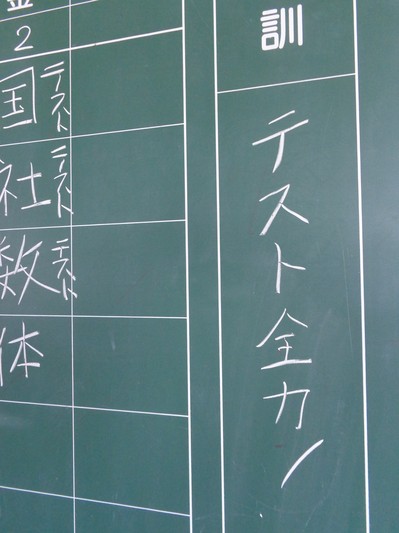 訓
テスト全力！
金
2
国 テスト
社 テスト
数 テスト
体